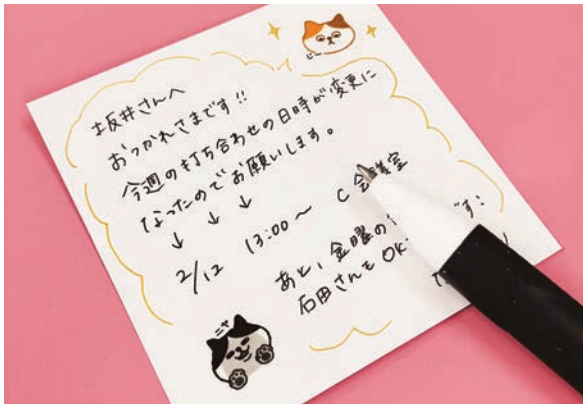 じー
坂井さんへ
おつかれさまです!!
今週の打ち合わせの日時が変更に
なったのでお願いします。
↓ ↓ ↓
2/12 13:00〜 C会議室
あと、金曜の
石田さんもOK
ニャ